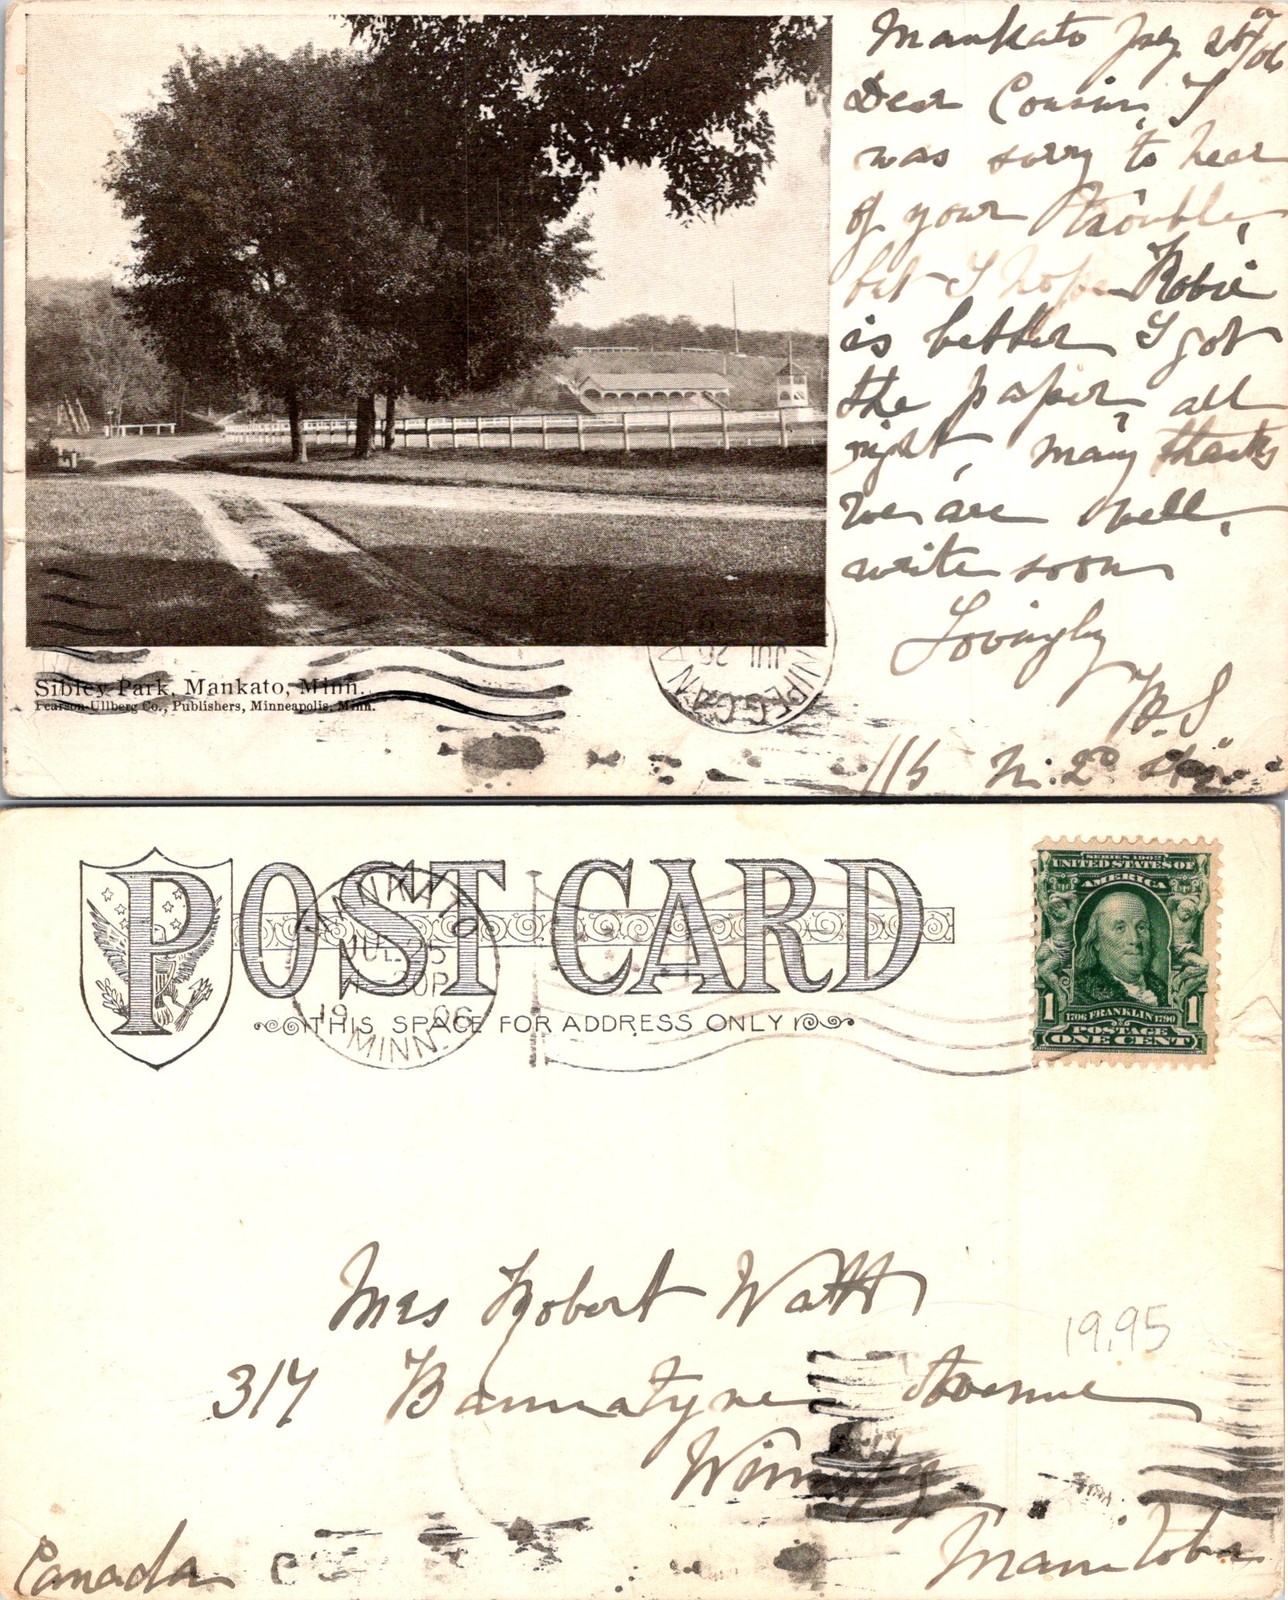 Mankato July 25/06
Dear Cousin, I
was sorry to hear
of your trouble,
but I hope Robie
is better I got
the paper, all
right, many thanks
we are well,
write soon
Lovingly
115 N. 2D
Sibley Park, Mankato, Minn.
Pearson-Ullberg Co., Publishers, Minneapolis, Minn.
WINNIPEG CAN
JUL 26
POST CARD
THIS SPACE FOR ADDRESS ONLY
MANKATO
JUL 25
1906
MINN.
SERIES 1902
UNITED STATES OF
AMERICA
1706 FRANKLIN 1790
1 POSTAGE 1
ONE CENT
Mrs Robert Watt
317 Bannatyne Avenue
Winnipeg
Manitoba
Canada
19.95